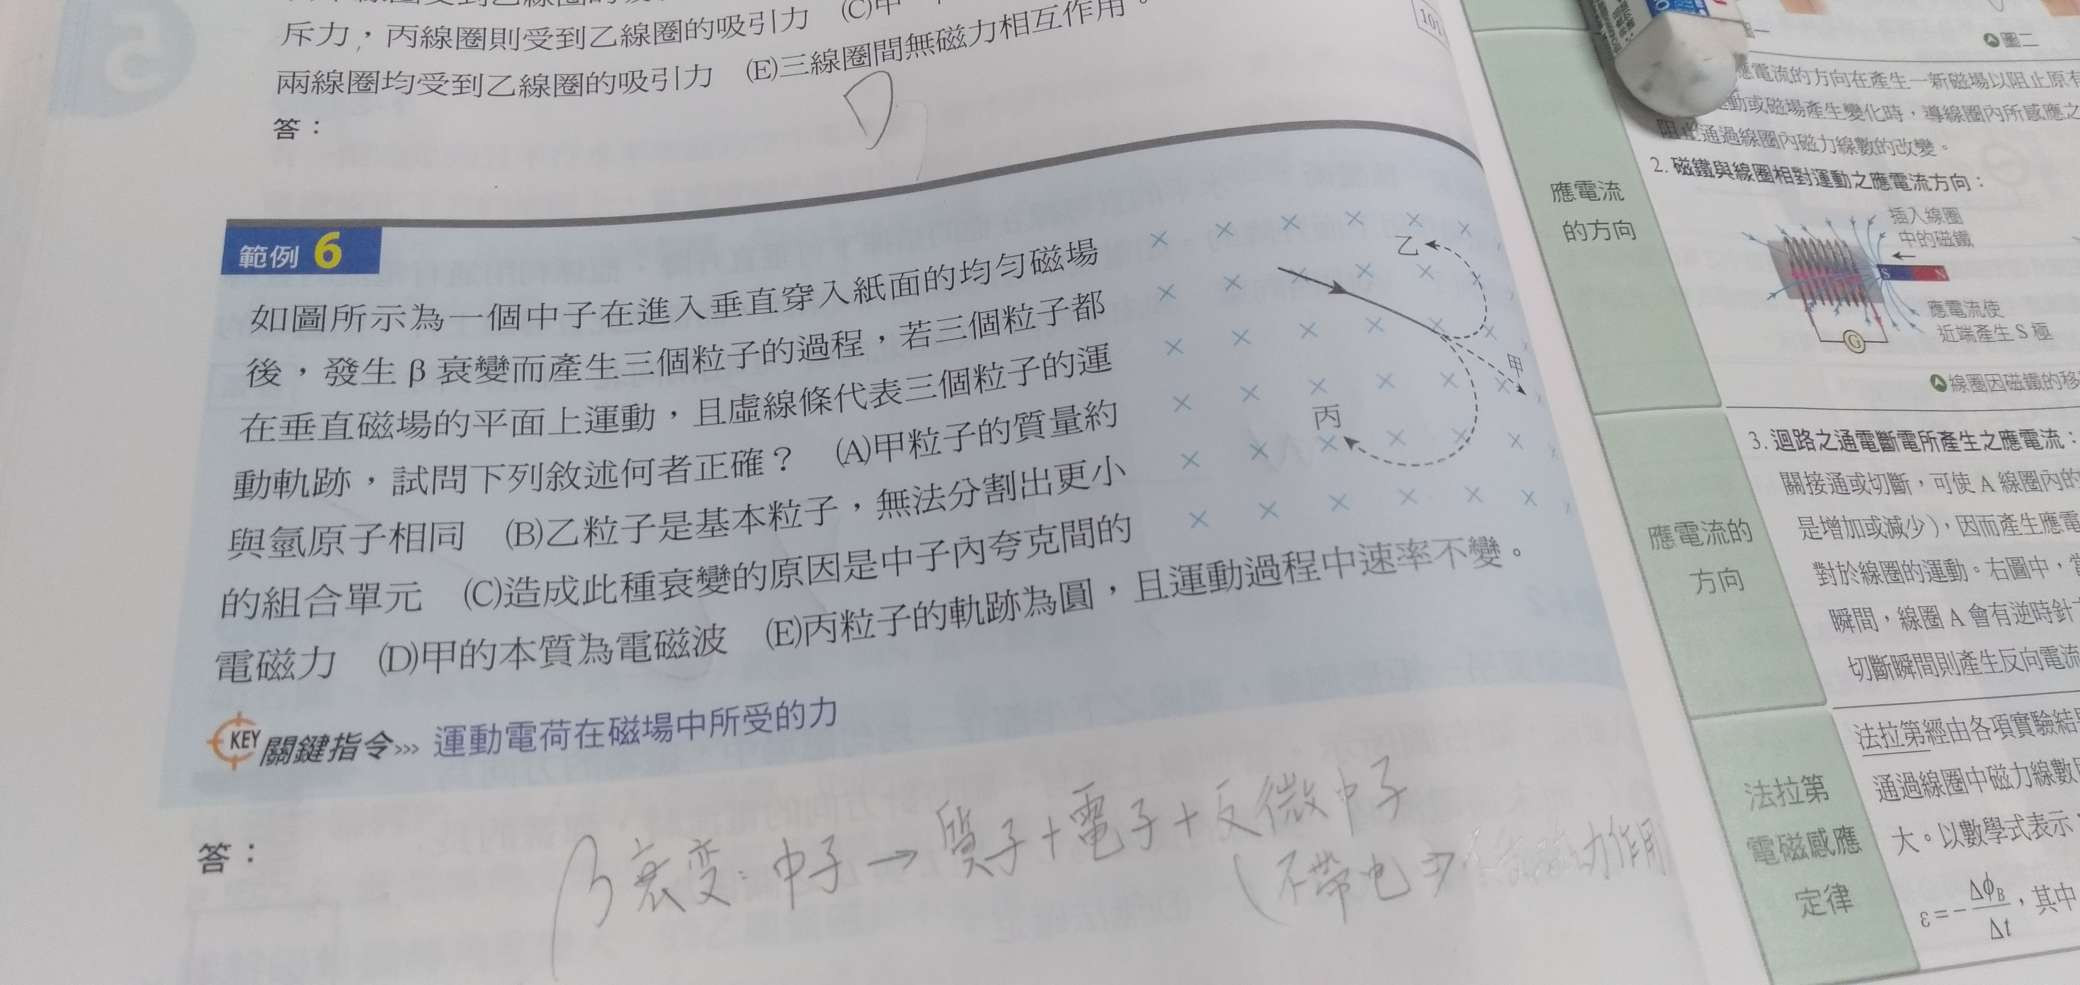 斥力，丙線圈則受到乙線圈的吸引力　(C)甲
兩線圈均受到乙線圈的吸引力　(E)三線圈間無磁力相互作用。
答：
D
範例 6
如圖所示為一個中子在進入垂直穿入紙面的均勻磁場
後，發生 β 衰變而產生三個粒子的過程，若三個粒子都
在垂直磁場的平面上運動，且虛線條代表三個粒子的運
動軌跡，試問下列敘述何者正確？　(A)甲粒子的質量約
與氫原子相同　(B)乙粒子是基本粒子，無法分割出更小
的組合單元　(C)造成此種衰變的原因是中子內夸克間的
電磁力　(D)甲的本質為電磁波　(E)丙粒子的軌跡為圓，且運動過程中速率不變。
乙
甲
丙
KEY 關鍵指令››› 運動電荷在磁場中所受的力
答：
β衰变：中子→質子＋電子＋反微中子
(不帶电⇒
力作用
5
101
圖二
應電流的方向在產生一新磁場以阻止原有
動或磁場產生變化時，導線圈內所感應之
通過線圈內磁力線數的改變。
應電流
的方向
2. 磁鐵與線圈相對運動之應電流方向：
插入線圈
中的磁鐵
S N
應電流使
近端產生 S 極
G
線圈因磁鐵的移
應電流的
方向
3. 迴路之通電斷電所產生之應電流：
關接通或切斷，可使 A 線圈內的
是增加或減少)，因而產生應電
對於線圈的運動。右圖中，當
瞬間，線圈 A 會有逆時針方
切斷瞬間則產生反向電流
法拉第
電磁感應
定律
法拉第經由各項實驗結果
通過線圈中磁力線數
大。以數學式表示，
ε＝－ΔφB/Δt，其中